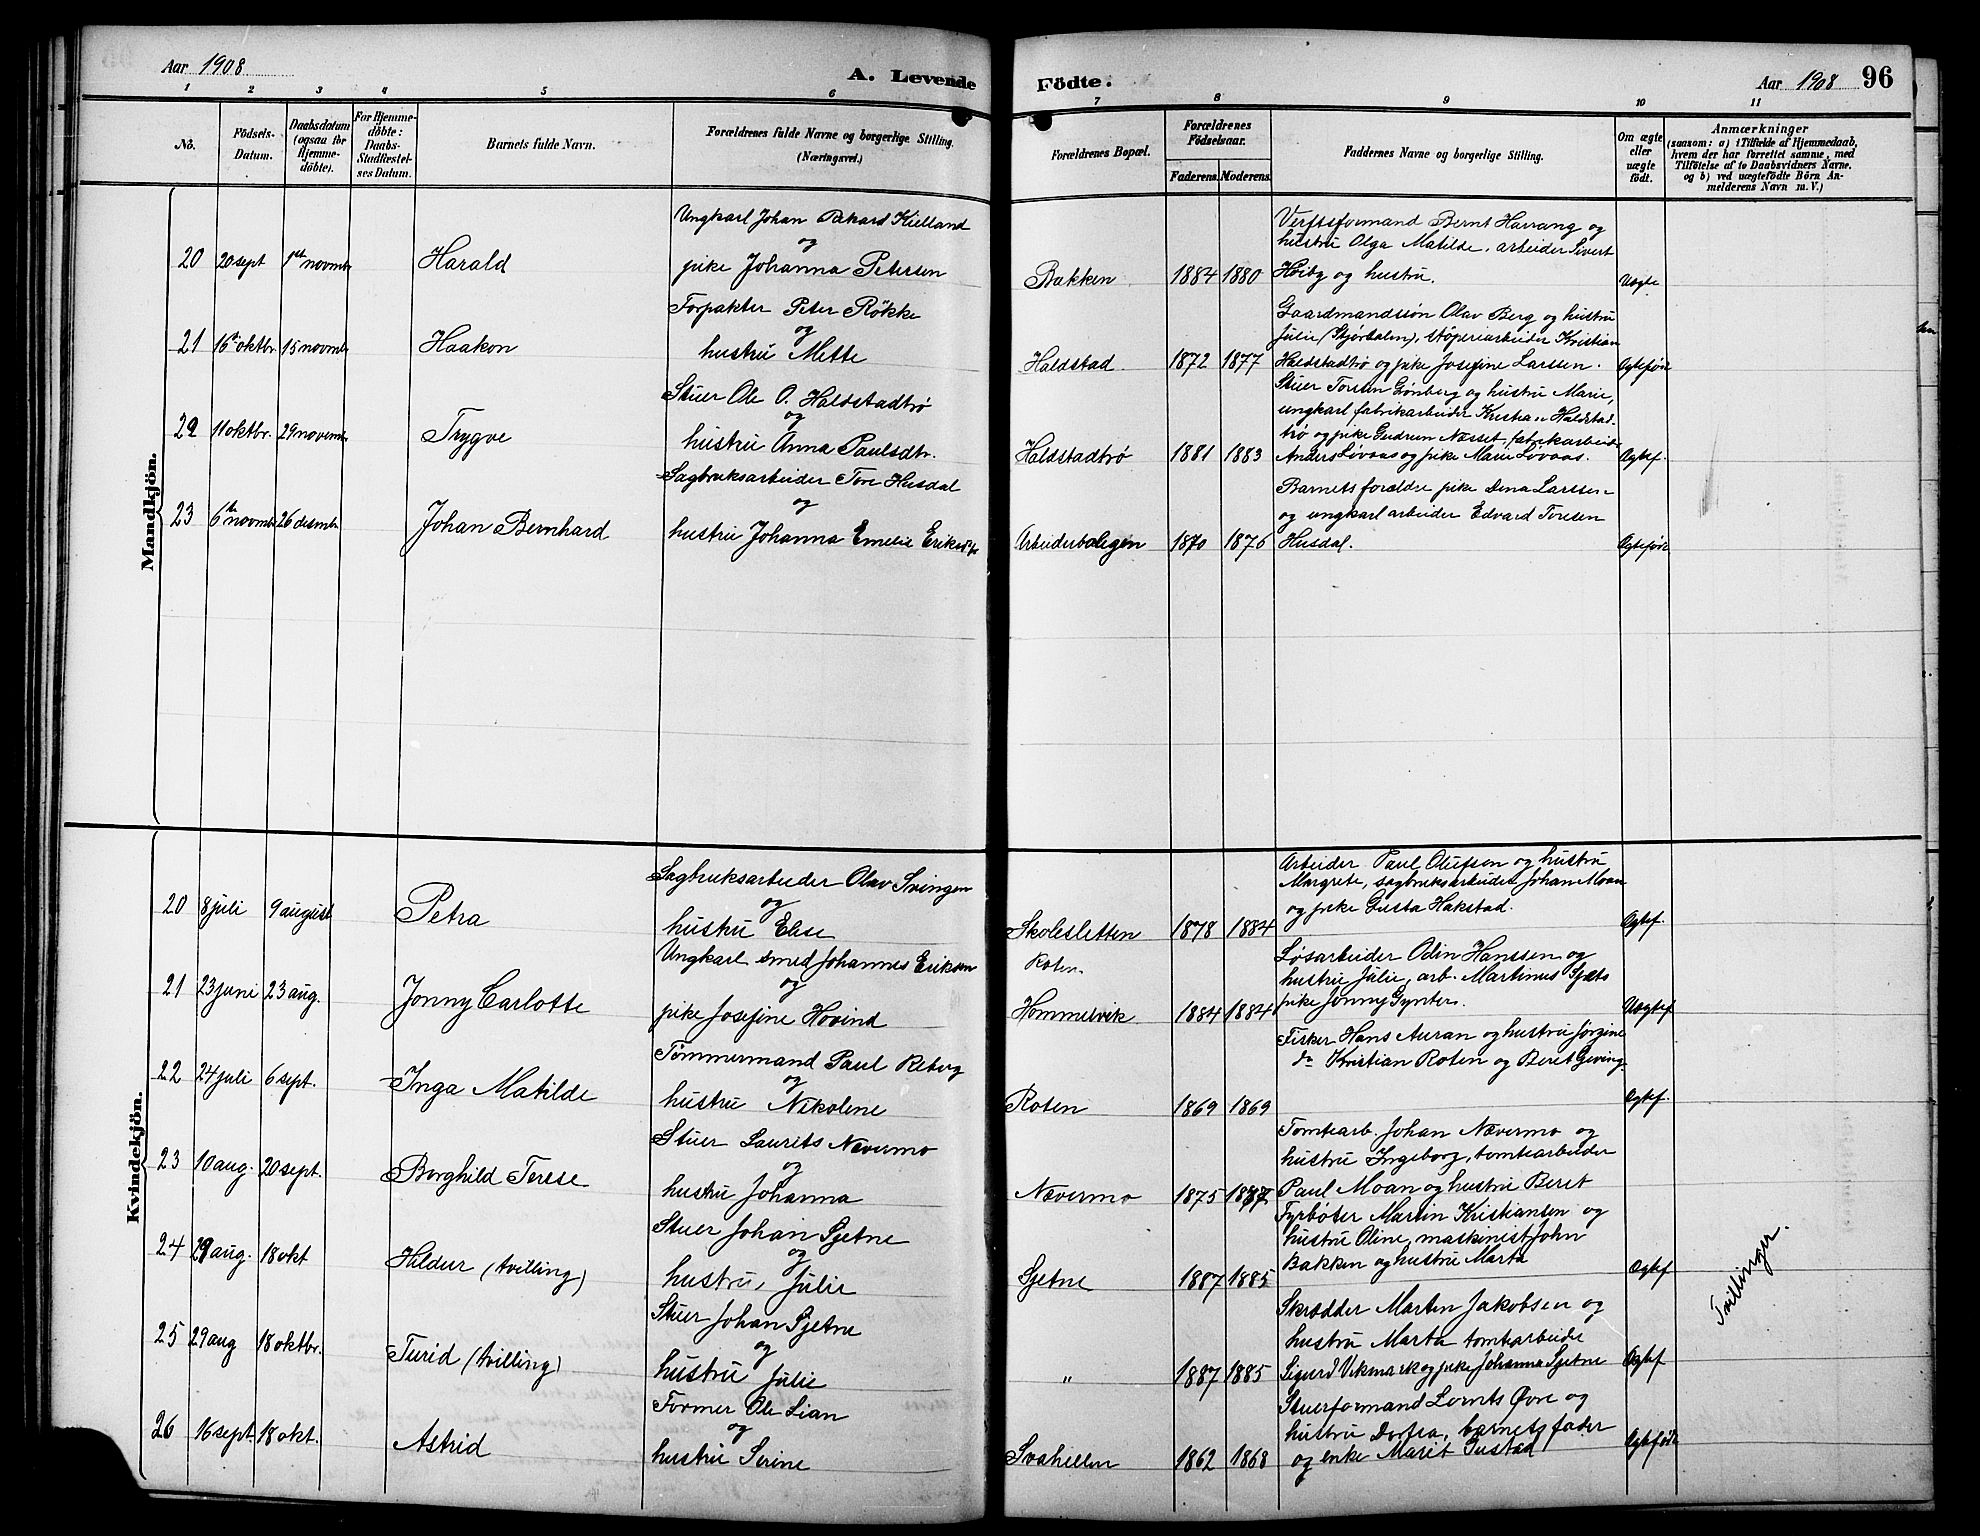 Aar 1908
A. Levende
Födte.
Aar 1908
96
1 2 3 4 5 6 7 8 9 10 11
No.
Födsels-
Datum.
Daabsdatum
(ogsaa for
Hjemme-
döbte).
For Hjemme-
döbte:
Daabs-
Stadfæstel-
ses Datum.
Barnets fulde Navn.
Forældrenes fulde Navne og borgerlige Stilling.
(Næringsvei.)
Forældrenes Bopæl.
Forældrenes
Födselsaar.
Faderens. Moderens.
Faddernes Navne og borgerlige Stilling.
Om ægte
eller
uægte
født.
Anmærkninger
(saasom: a) i Tilfælde af Hjemmedaab,
hvem der har forrettet samme, med
Tilföielse af to Daabsvidners Navne.
og b) ved uægtefødte Börn An-
melderens Navn m. V.)
Mandkjön.
20 20 sept 1ste novmbr Harald
Ungkarl Johan Rikard Kielland
og
pike Johanna Petersen
Bakken 1884 1880
Verftsformand Bernt Harrang og
hustru Olga Matilde, arbeider Sivert
Høiby og hustru.
Uægte
21 16de oktbr 15 novmbr Haakon
Forpakter Peter Røkke
og
hustru Mette
Haldstad 1872 1877
Gaardmandssøn Olav Berg og hustru
Julie (Stjørdalen), støperiarbeider Kristian
Haldstadtrø og pike Josefine Larssen.
Ægteføde
22 11 oktbr. 29 novembr Trygve
Stuer Ole O. Haldstadtrø
og
hustru Anna Paulsdtr.
Haldstadtrø 1881 1883
Stuer Torsten Grønberg og hustru Marie,
ungkarl fabrikarbeider Kristian Haldstad-
trø og pike Gudrun Næsset, fabrikarbeid.
Anders Løvaas og pike Marie Løvaas.
Ægtef.
23 6te novmbr 26 desmbr Johan Bernhard
Sagbruksarbeider Tore Husdal
og
hustru Johanna Emelie Eriksdtr
Arbeiderboligen 1870 1876
Barnets forældre pike Dina Larssen
og ungkarl arbeider Edvard Toresen
Husdal.
Ægteføde
Kvindekjön.
20 8 juli 9 august Petra
Sagbruksarbeider Olav Svingen
og
hustru Elise
Skolesletten 1878 1884
Arbeider Paul Olufsen og hustru
Margrete, sagbruksarbeider Johan Moan
og pike Gusta Hakstad.
Ægtef.
21 23 juni 23 aug. Jonny Carlotte
Ungkarl smed Johannes Eriksen
og
pike Josefine Hovind
Roten.
Hommelvik 1884 1884
Løsarbeider Odin Hanssen og
hustru Julie, arb. Martinus Sjæts
pike Jonny Gynter.
Uægtef
22 24 juli 6 sept. Inga Matilde
Tømmermand Paul Reberg
og
hustru Nikoline
Roten 1869 1869
Fisker Hans Auran og hustru Jørgine
do Kristian Roten og Beret Geving
Ægtef.
23 10 aug. 20 sept. Borghild Terese
Stuer Laurits Nævermo
og
hustru Johanna
Nævermo 1875 1877
Tomtearb. Johan Nævermo og
hustru Ingeborg, tomtearbeider
Paul Moan og hustru Beret
24 29 aug. 18 okt Hildur (tvilling)
Stuer Johan Sjetne
og
hustru, Julie
Sjetne 1887 1885
Fyrbøter Martin Kristiansen og
hustru Oline, maskinist John
Bakken og hustru Marta
Ægtef
Tvillinger.
25 29 aug 18 oktbr. Turid (tvilling)
Stuer Johan Sjetne
og
hustru Julie
„ 1887 1885
Skrædder Martin Jakobsen og
hustru Marta tomtearbeider
Sigurd Vikmark og pike Johanna Sjetne
Ægtef
26 16 sept. 18 okt. Astrid
Former Ole Lian
og
hustru Serine
Svahillen 1862 1868
Stuerformand Lornts Øvre og
hustru Dortea, barnets fader
og enke Marit Gustad
Ægteføde